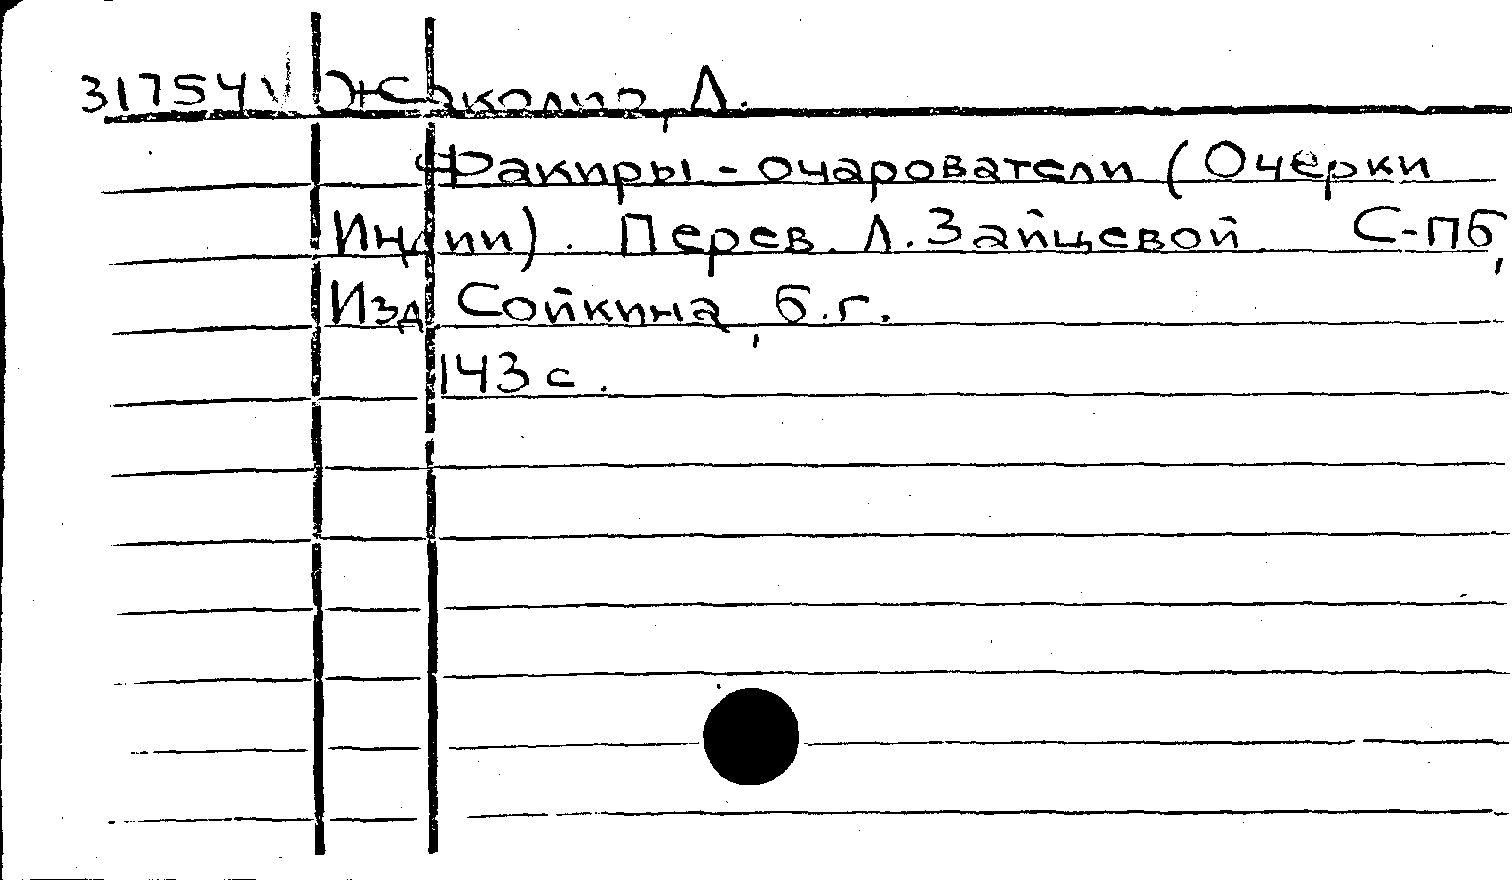 31754 V Жаколио, Л.
Факиры - очарователи (Очерки
Индии). Перев. Л. Зайцевой С-Пб,
Изд Сойкина, б.г.
143 с.